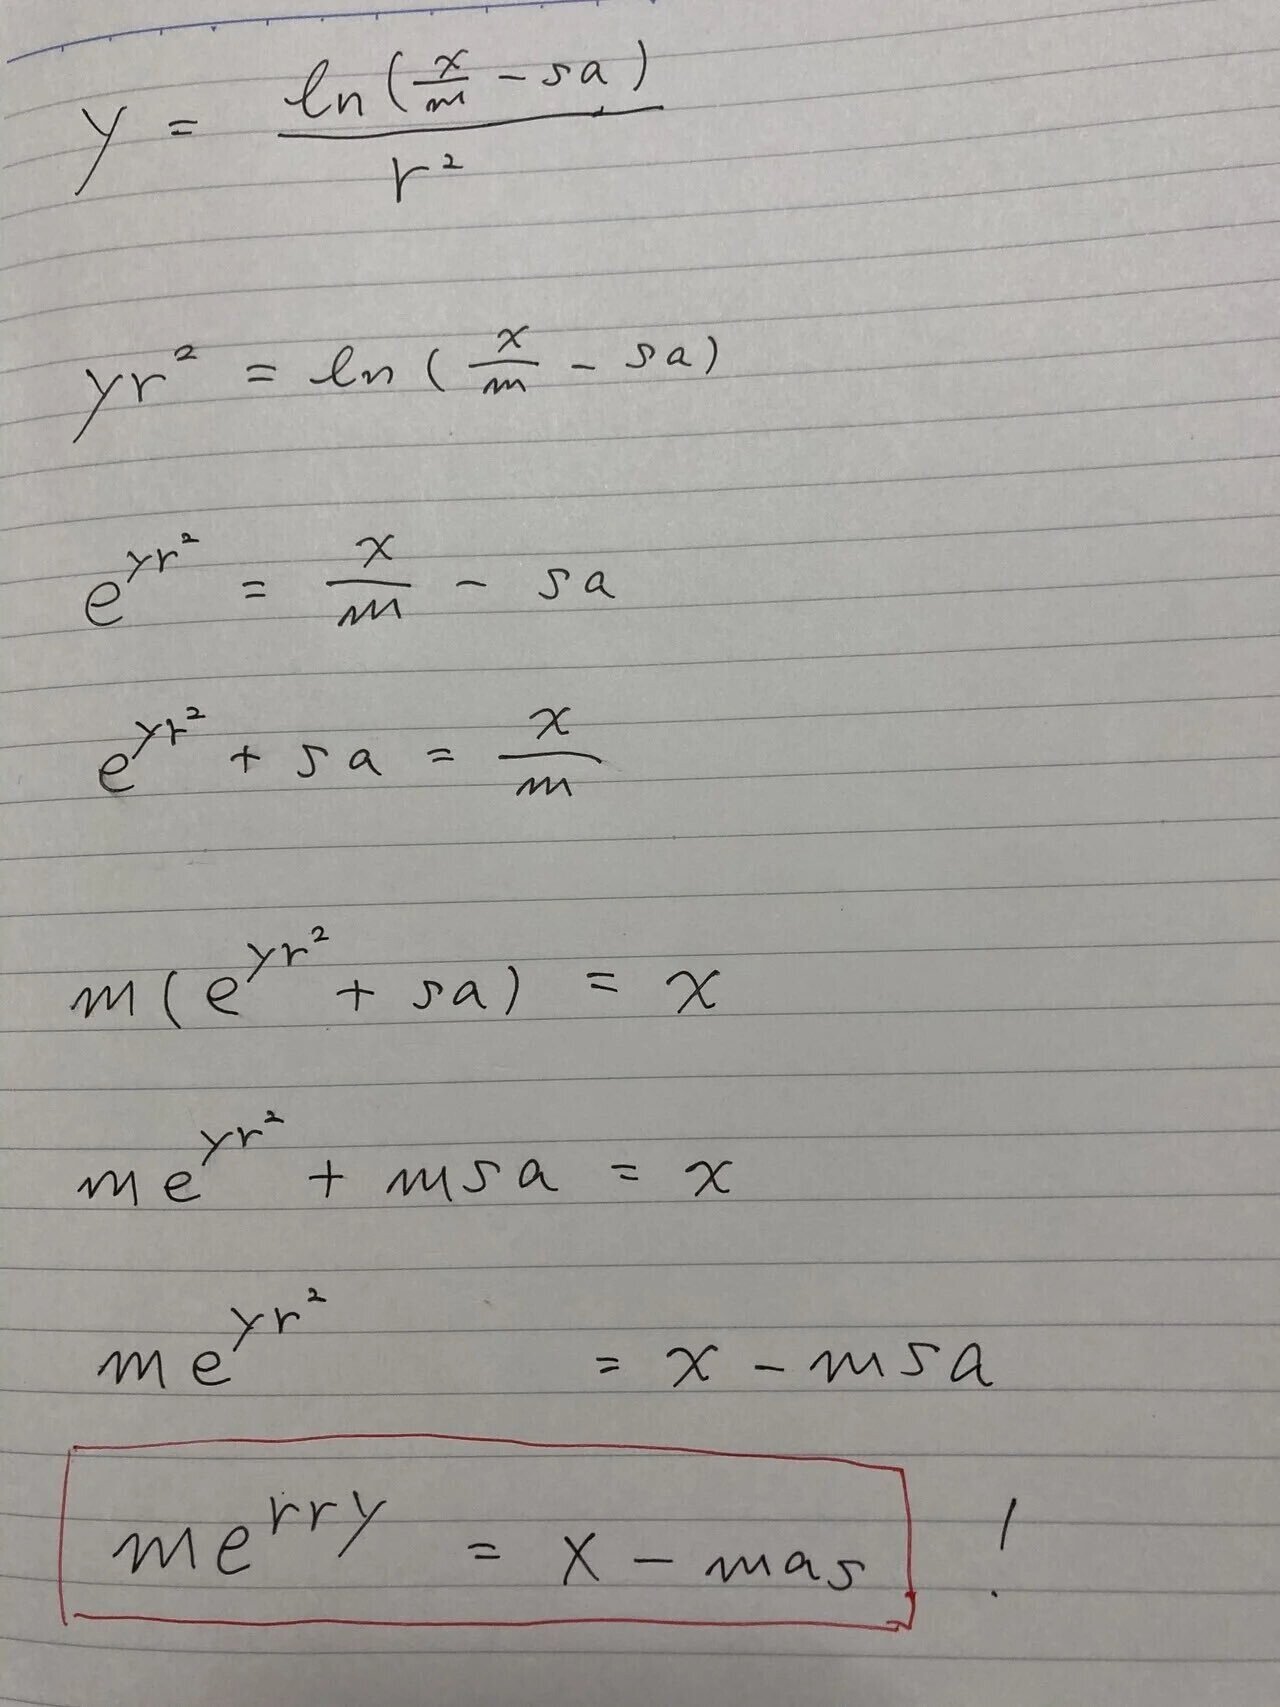 y = ln(x/m - sa) / r²
yr² = ln(x/m - sa)
e^(yr²) = x/m - sa
e^(yr²) + sa = x/m
m(e^(yr²) + sa) = x
me^(yr²) + msa = x
me^(yr²) = x - msa
me^(rry) = x - mas !